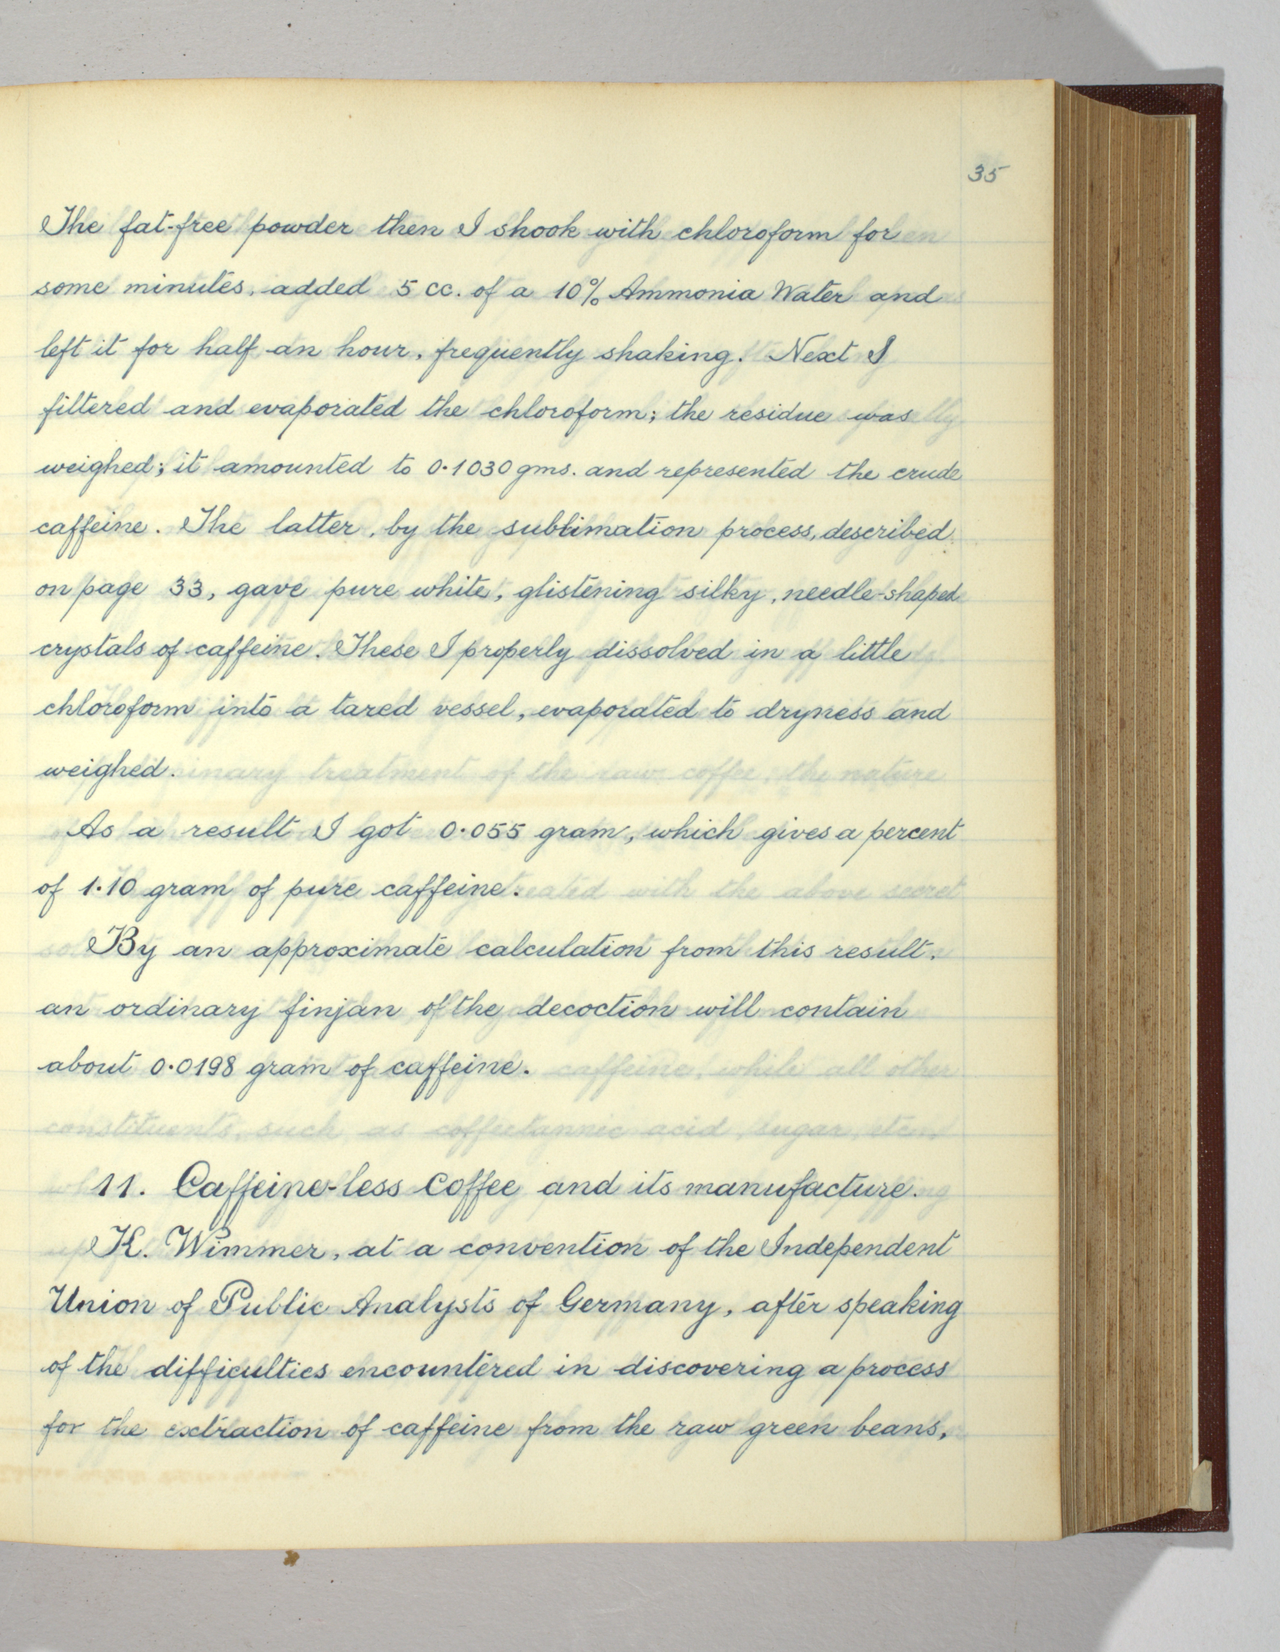 35
The fat-free powder then I shook with chloroform for
some minutes, added 5 cc. of a 10% Ammonia Water and
left it for half an hour, frequently shaking. Next I
filtered and evaporated the chloroform; the residue was
weighed; it amounted to 0.1030 gms. and represented the crude
caffeine. The latter, by the sublimation process, described
on page 33, gave pure white, glistening silky, needle-shaped
crystals of caffeine. These I properly dissolved in a little
chloroform into a tared vessel, evaporated to dryness and
weighed.
As a result I got 0.055 gram, which gives a percent
of 1.10 gram of pure caffeine.
By an approximate calculation from this result,
an ordinary finjan of the decoction will contain
about 0.0198 gram of caffeine.
11. Caffeine-less Coffee and its manufacture.
K. Wimmer, at a convention of the Independent
Union of Public Analysts of Germany, after speaking
of the difficulties encountered in discovering a process
for the extraction of caffeine from the raw green beans,